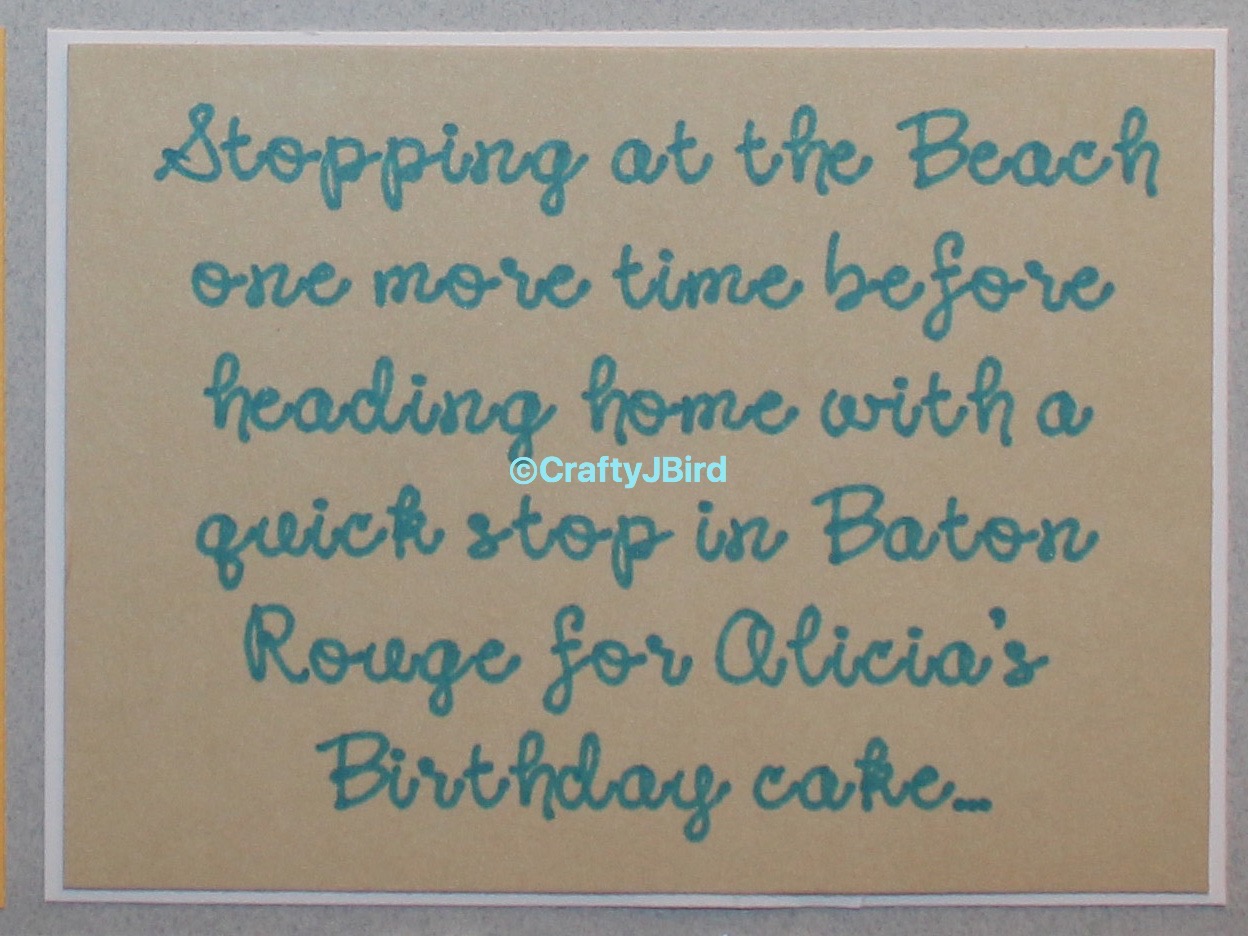 Stopping at the Beach
one more time before
heading home with a
©CraftyJBird
quick stop in Baton
Rouge for Alicia's
Birthday cake...